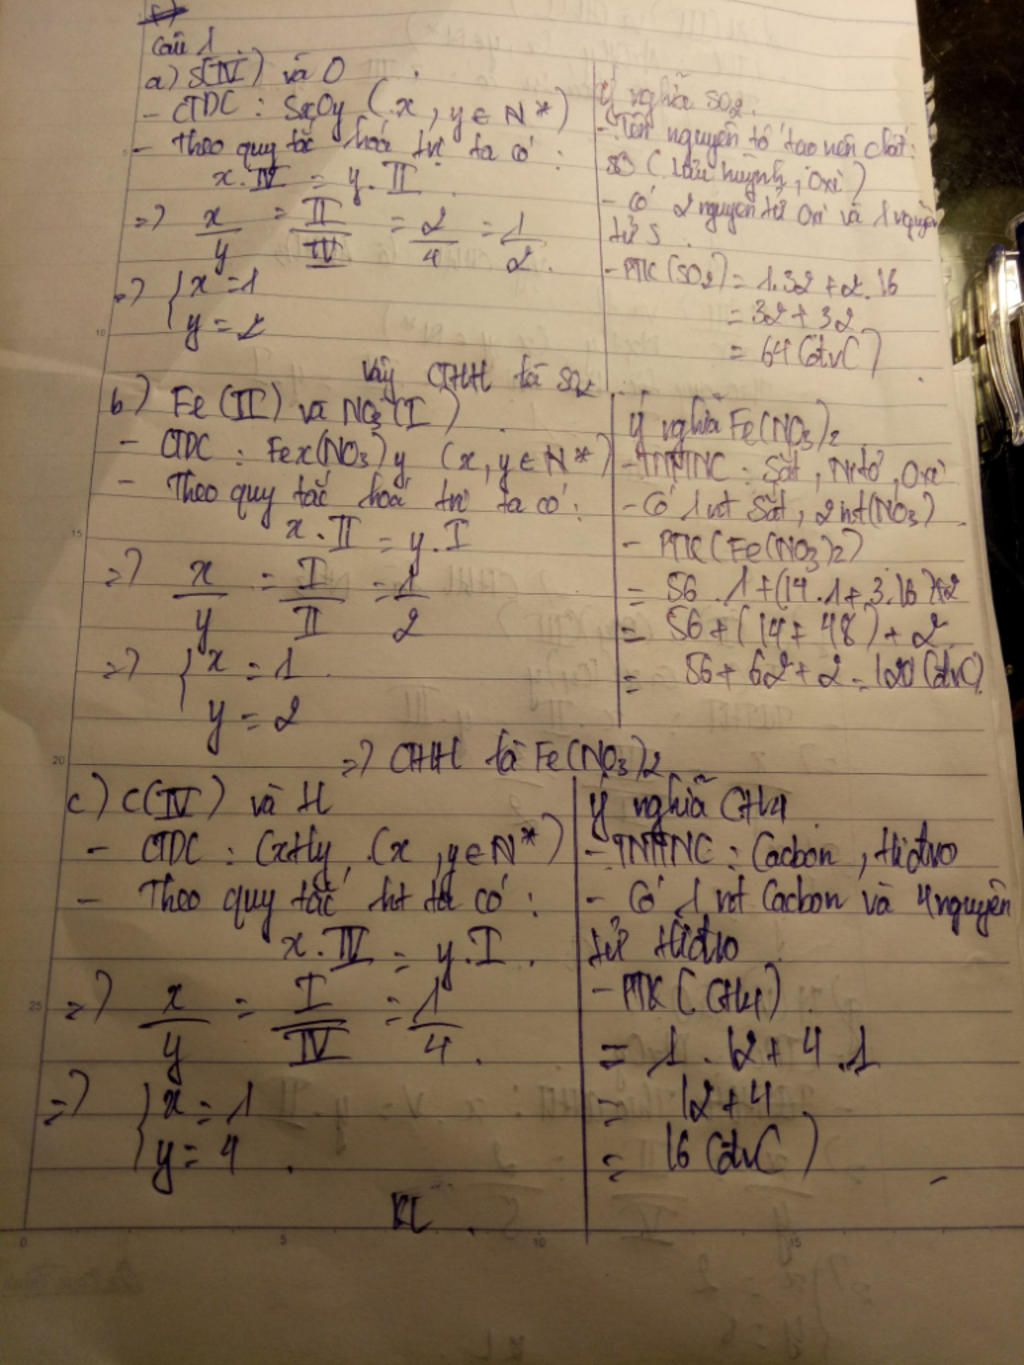 Câu 1
a) S(IV) và O
- CTDC : SxOy (x, y ∈ N*)
- Theo quy tắc hoá trị ta có :
x.IV = y.II
=> x/y = II/IV = 2/4 = 1/2.
=> { x = 1
y = 2
Vậy CTHH là SO2.
Ý nghĩa SO2.
- Tên nguyên tố tạo nên chất :
(lưu huỳnh, Oxi)
- Có 2 nguyên tử Oxi và 1 nguyên
tử S.
- PTK (SO2) = 1.32 + 2.16
= 32 + 32
= 64 (đvC).
b) Fe (II) và NO3 (I)
- CTDC : Fex(NO3)y (x, y ∈ N*)
- Theo quy tắc hoá trị ta có :
x.II = y.I
=> x/y = I/II = 1/2
=> { x = 1
y = 2
=> CTHH là Fe(NO3)2
Ý nghĩa Fe(NO3)2
- TNTTNC : Sắt, Nitơ, Oxi
- Có 1 nt Sắt, 2 nt (NO3).
- PTK (Fe(NO3)2)
= 56 . 1 + (14.1 + 3.16) + 2
= 56 + (14 + 48) + 2
= 56 + 62 + 2 = 120 (đvC)
c) C(IV) và H
- CTDC : CxHy (x, y ∈ N*)
- Theo quy tắc ht ta có :
x.IV = y.I.
=> x/y = I/IV = 1/4.
=> { x = 1
y = 4.
KL.
Ý nghĩa CH4
- TNTTNC : Cacbon, Hiđro
- Có 1 nt Cacbon và 4 nguyên
tử Hiđro
- PTK (CH4)
= 1 . 12 + 4 . 1
= 12 + 4
= 16 (đvC)